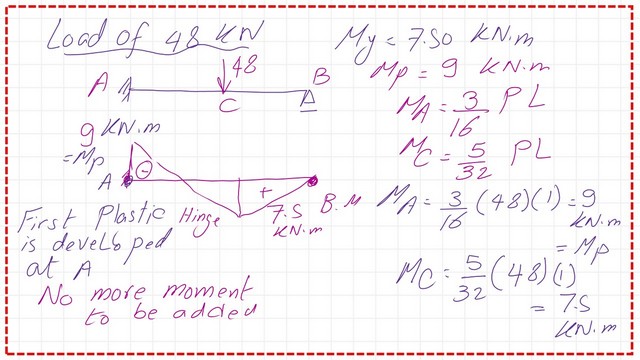 Load of 48 KN
48
A
B
C
9 KN.m
= Mp
A
-
+
7.5
KN.m
B.M
First Plastic Hinge
is developed
at A
No more moment
to be added
My = 7.50 KN.m
Mp = 9 KN.m
MA = 3/16 PL
MC = 5/32 PL
MA = 3/16 (48)(1) = 9
KN.m
= Mp
MC = 5/32 (48)(1)
= 7.5
KN.m